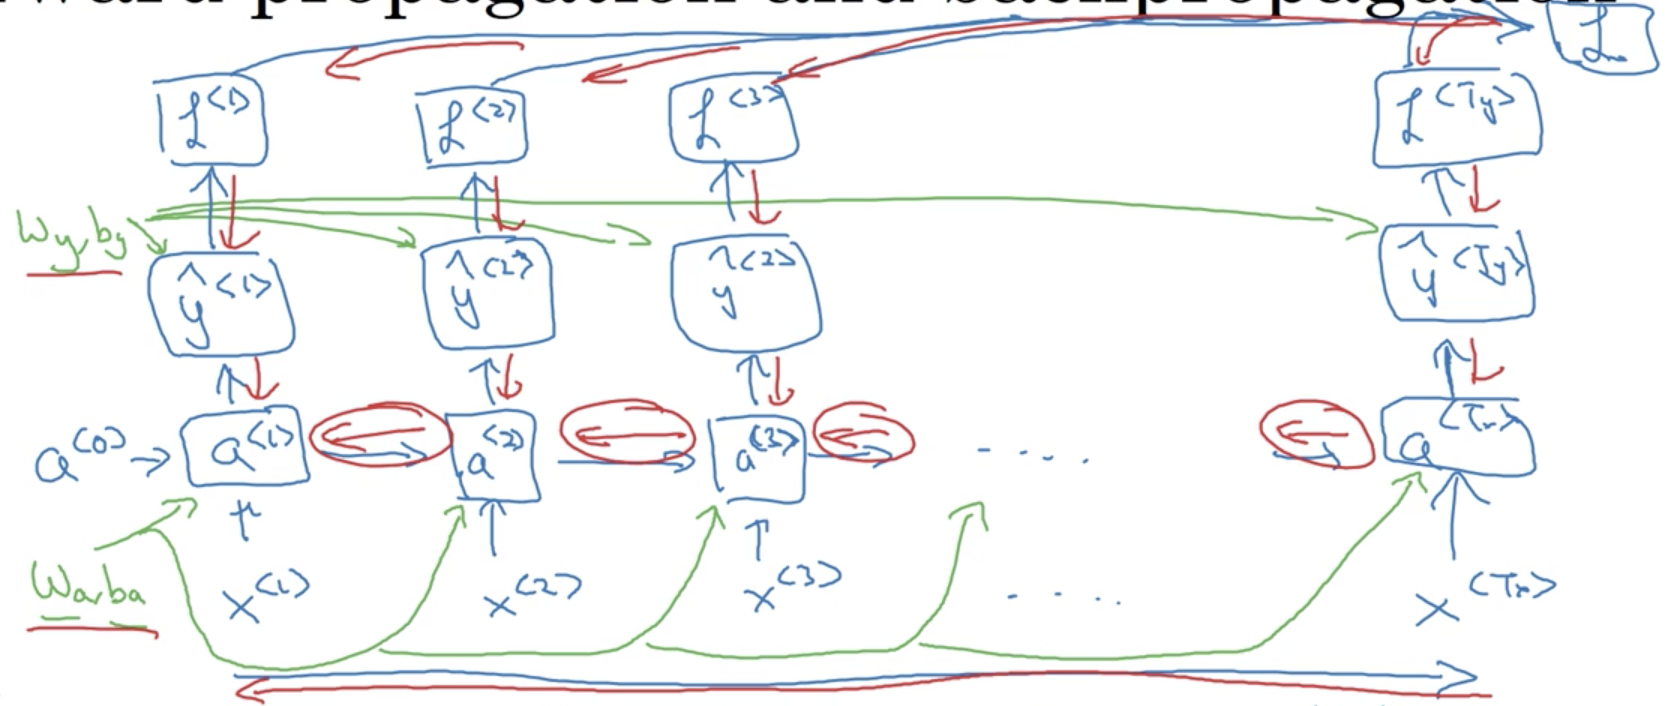 ward propagation and backpropagation
ℒ
ℒ<1> ℒ<2> ℒ<3> ℒ<Ty>
Wy,by
ŷ<1> ŷ<2> ŷ<2> ŷ<Ty>
a<0> a<1> a<2> a<3> .... a<Tx>
Wa,ba
x<1> x<2> x<3> .... x<Tx>